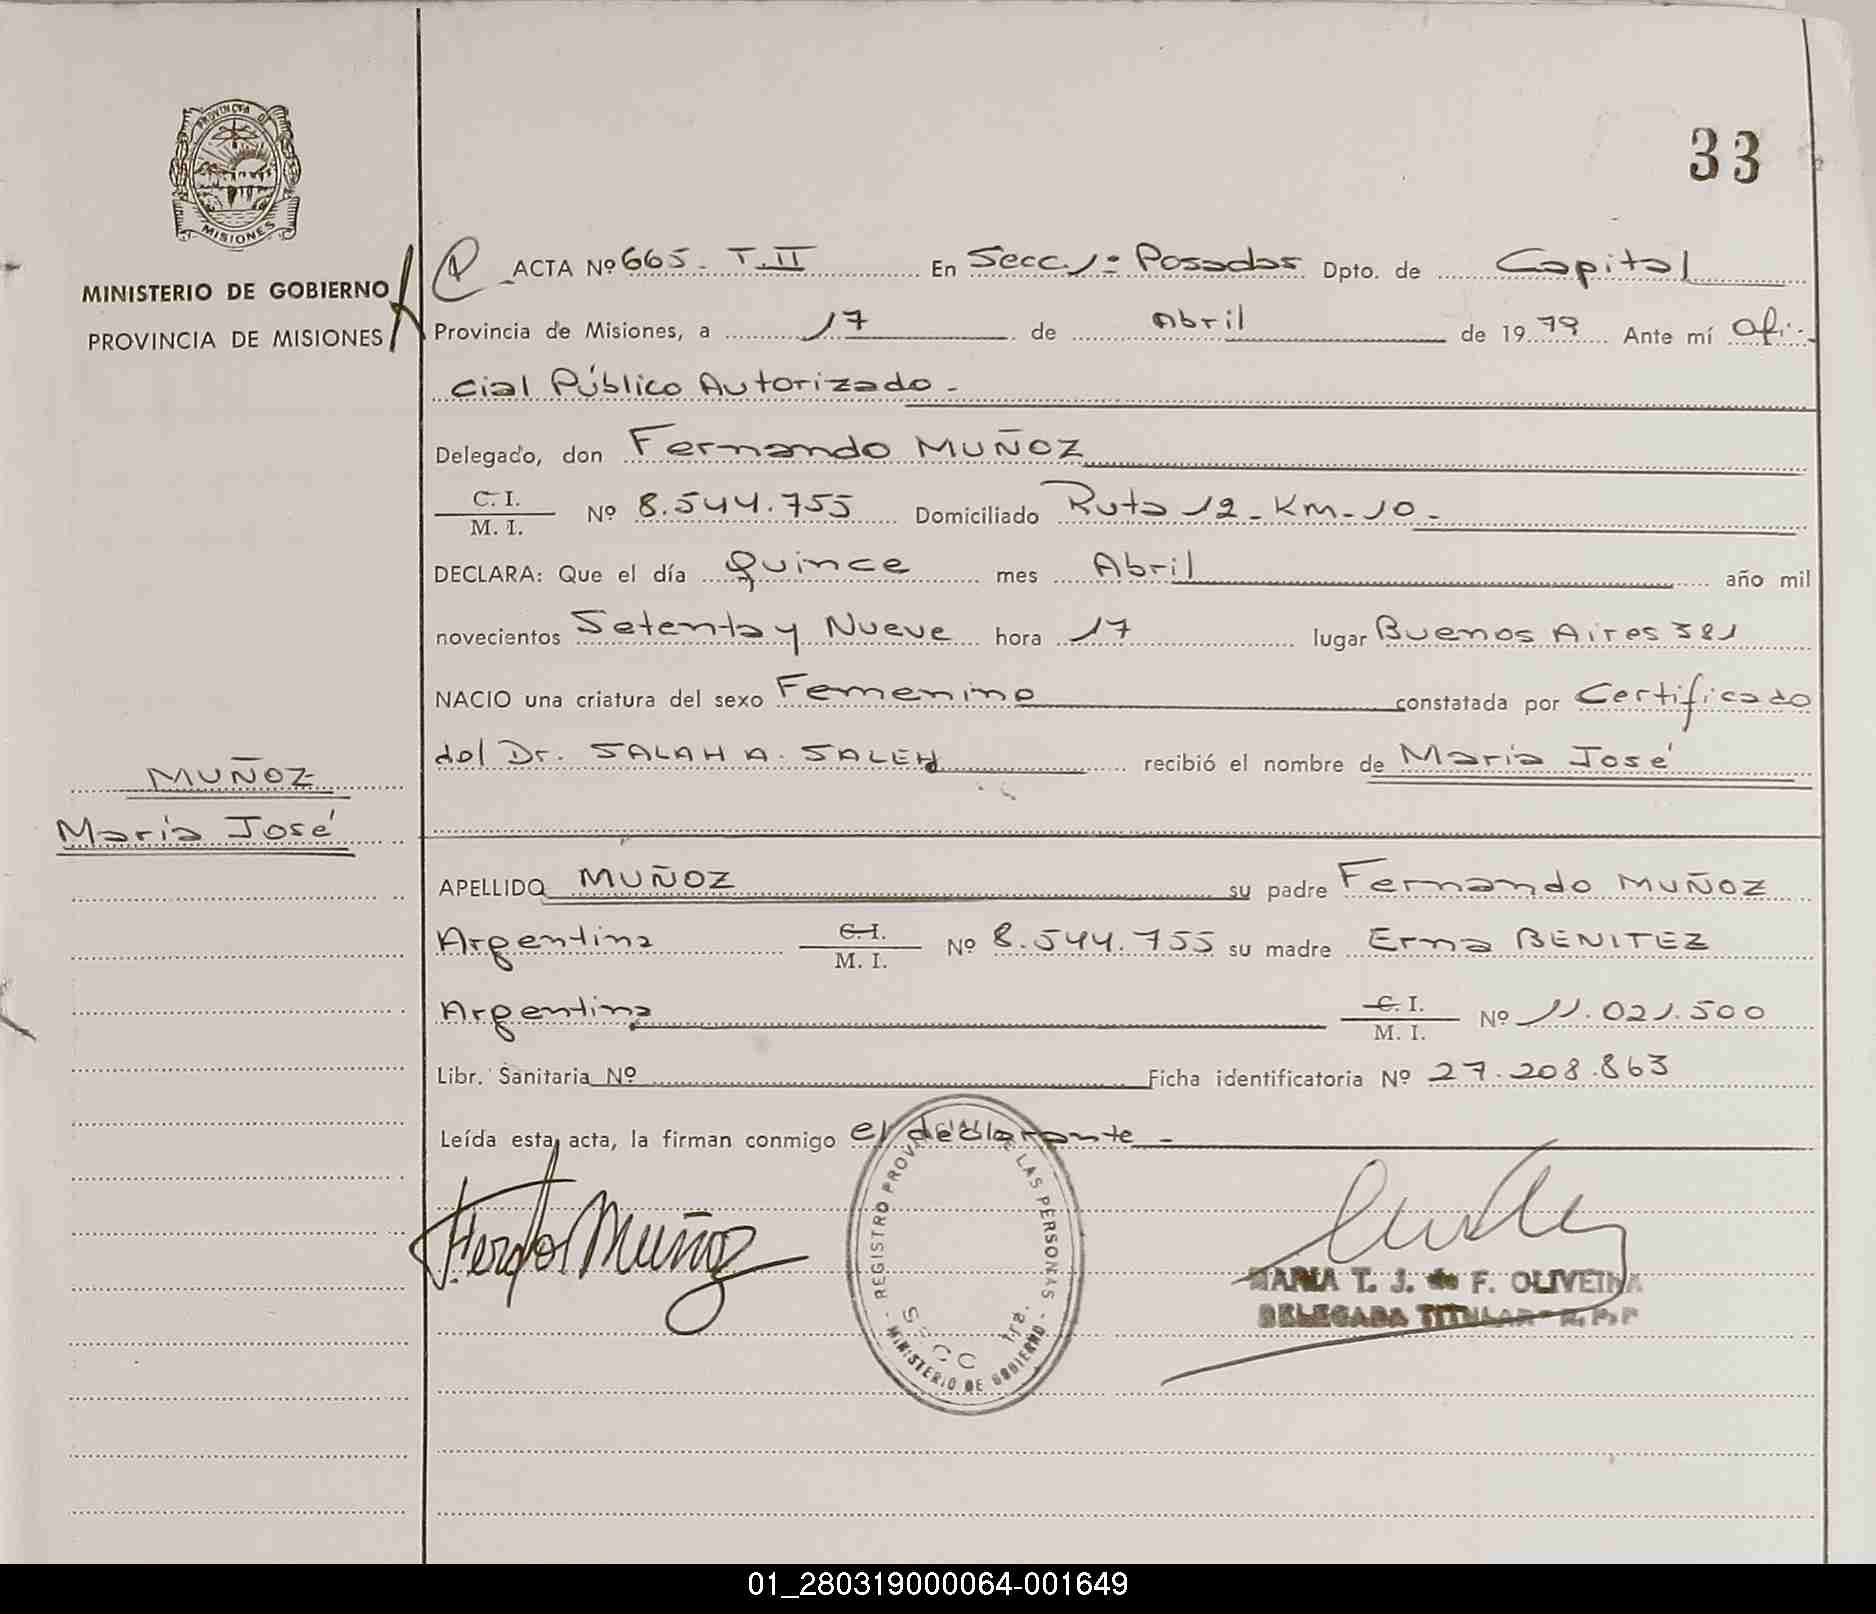 33
PROVINCIA DE
MISIONES
MINISTERIO DE GOBIERNO
PROVINCIA DE MISIONES
ACTA Nº 665. T.II En Secc. 1ª Posadas Dpto. de Capital
Provincia de Misiones, a 17 de Abril de 1979 Ante mí Ofi-
cial Público Autorizado.-
Delegado, don Fernando MUÑOZ
C. I.
M. I. Nº 8.544.755 Domiciliado Ruta 12 - Km - 10 -
DECLARA: Que el día Quince mes Abril año mil
novecientos Setenta y Nueve hora 17 lugar Buenos Aires 381
NACIO una criatura del sexo Femenino constatada por Certificado
del Dr. SALAH A. SALEH recibió el nombre de María José
MUÑOZ
María José
APELLIDO MUÑOZ su padre Fernando MUÑOZ
Argentina C. I. M. I. Nº 8.544.755 su madre Erma BENITEZ
Argentina C. I. M. I. Nº 11.021.500
Libr. Sanitaria Nº Ficha identificatoria Nº 27.208.863
Leída esta acta, la firman conmigo el declarante -
Ferdo Muñoz
REGISTRO PROVINCIAL DE LAS PERSONAS
SECC 1ra.
MINISTERIO DE GOBIERNO
MARIA T. J. de F. OLIVEIRA
DELEGADA TITULAR - R. P. P
01_280319000064-001649